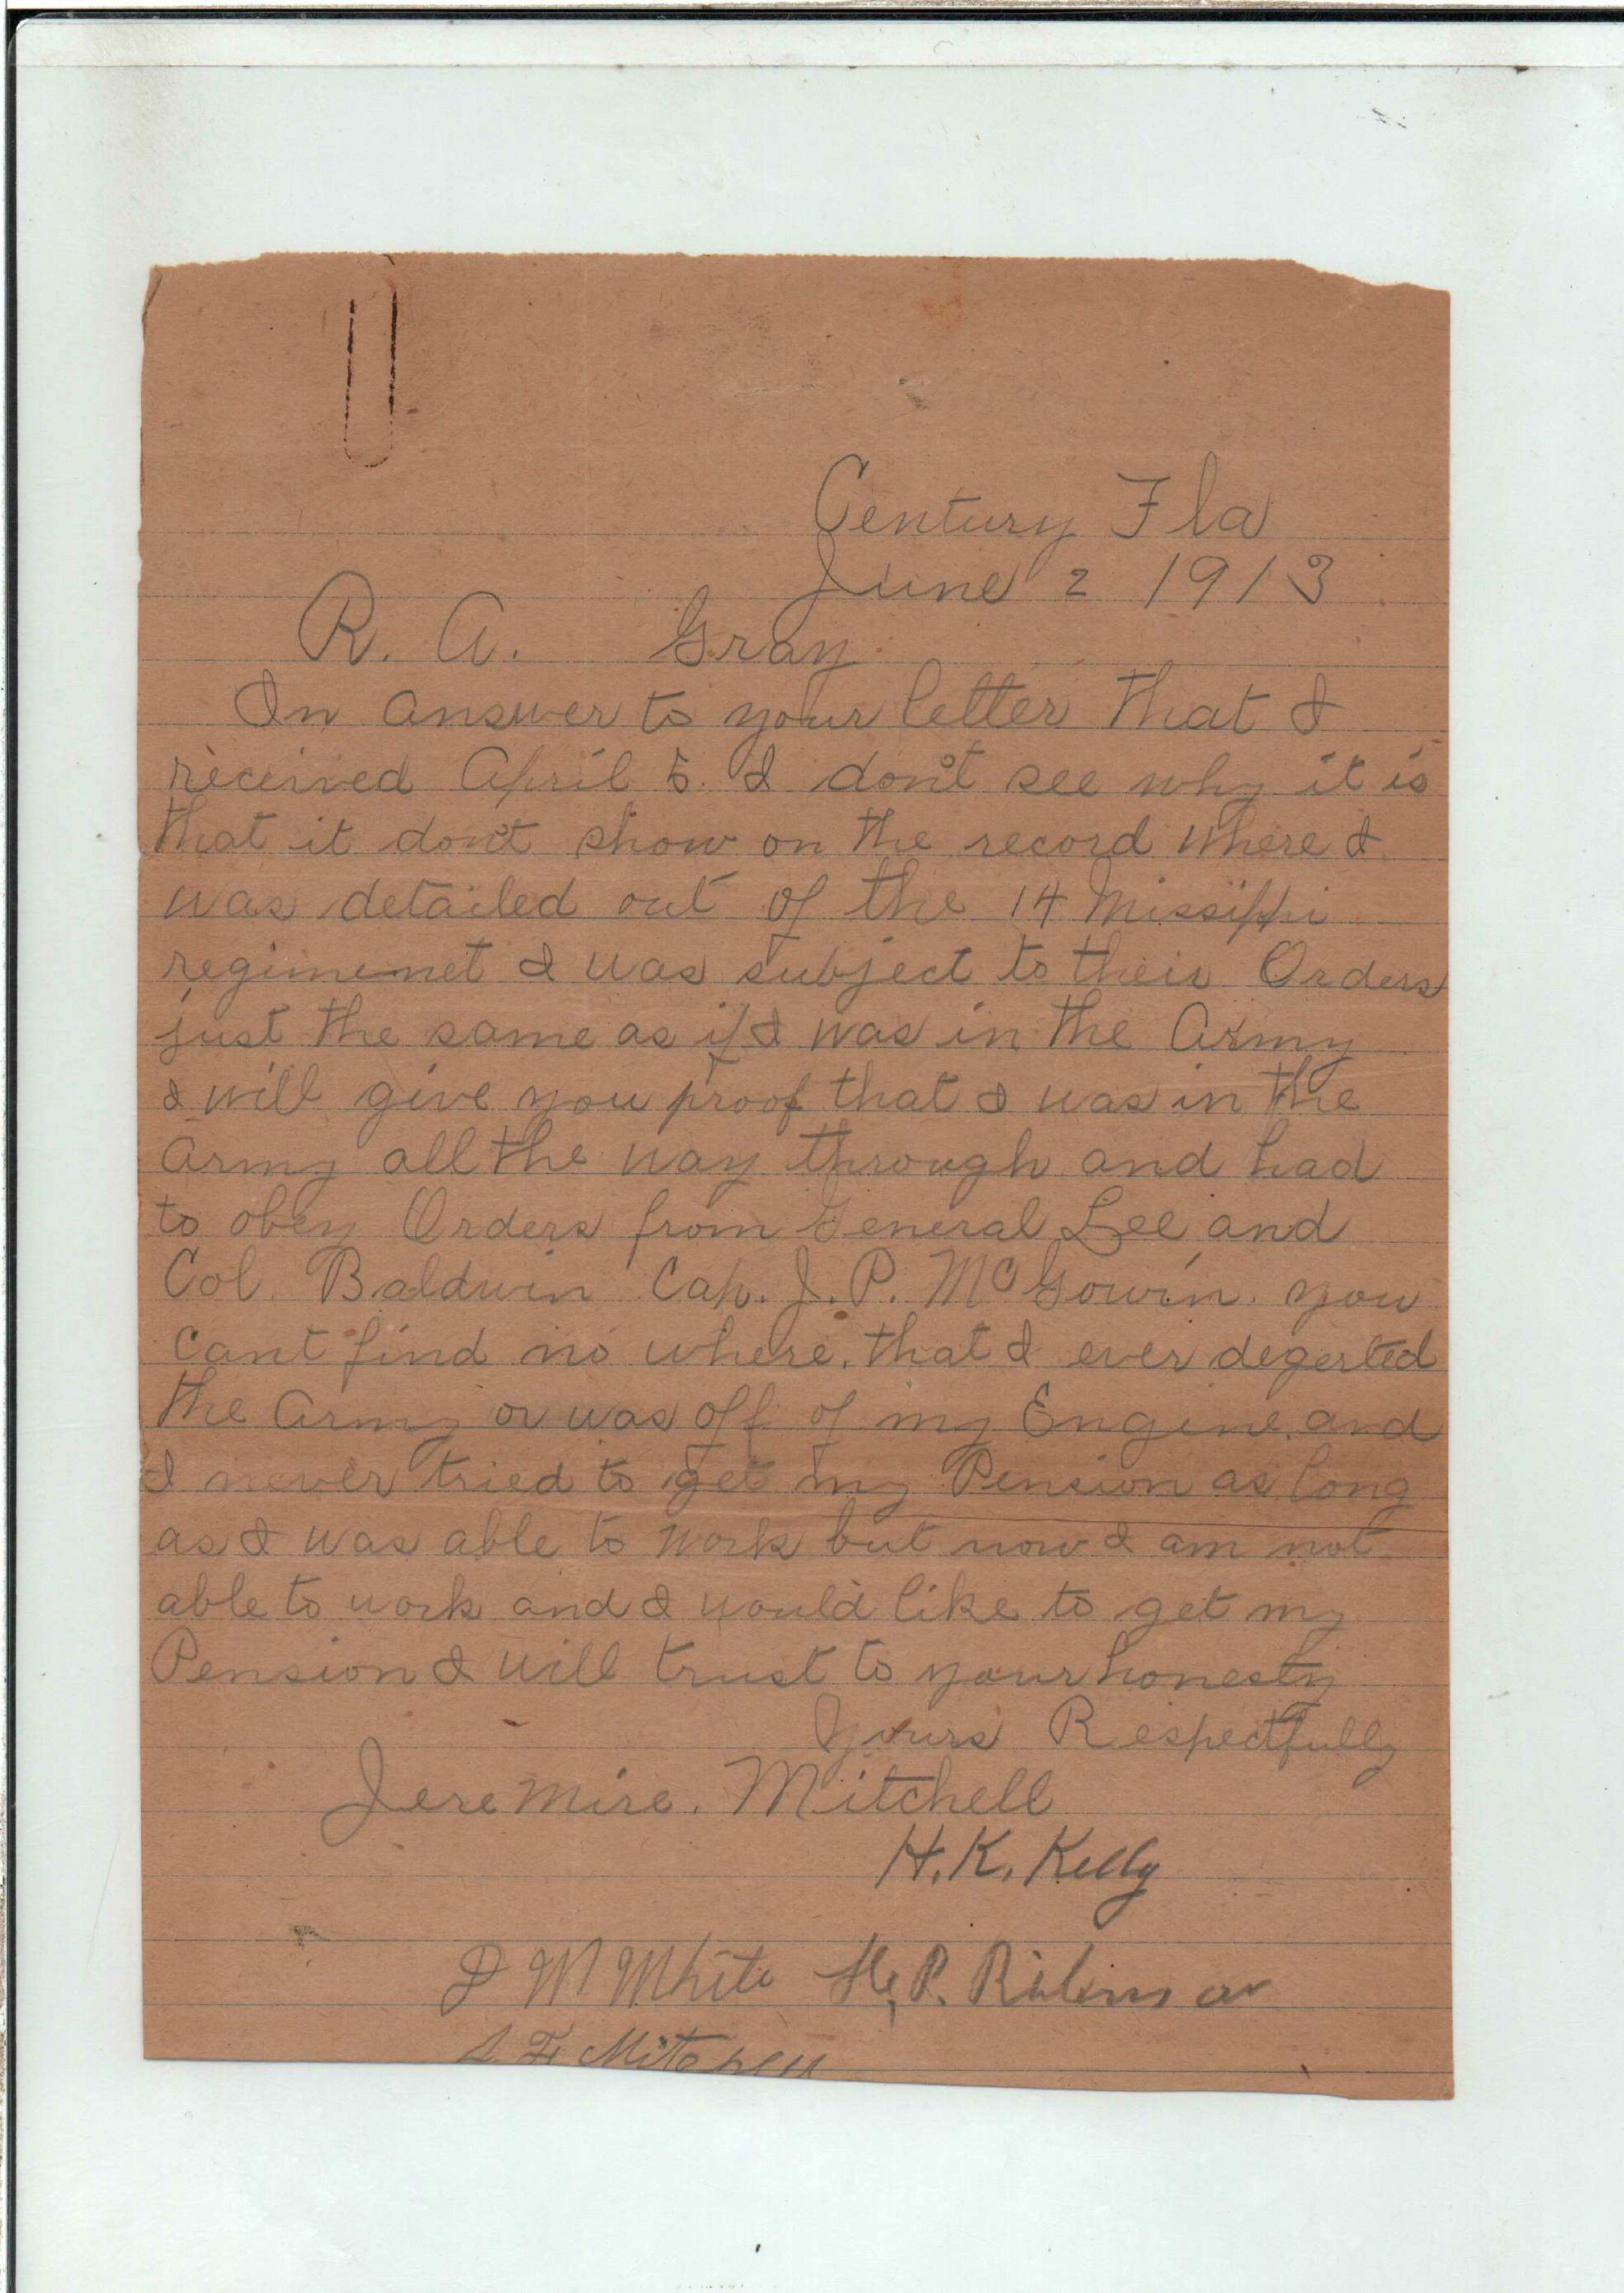 Century Fla
June 2 1913
R. A. Gray
In answer to your letter that I
received April 5. I don't see why it is
that it don't show on the record where I
was detailed out of the 14 Missippi
regimenet I was subject to their Orders
just the same as if I was in the Army
I will give you proof that I was in the
Army all the way through and had
to obey Orders from General Lee and
Col. Baldwin Cap. J. P. McGowin. you
cant find no where. that I ever deserted
the Army or was off of my Engine. and
I never tried to get my Pension as long
as I was able to work but now I am not
able to work and I would like to get my
Pension I will trust to your honesty
Yours Respectfully
Jeremire. Mitchell
H. K. Kelly
W White P.
Mitchell